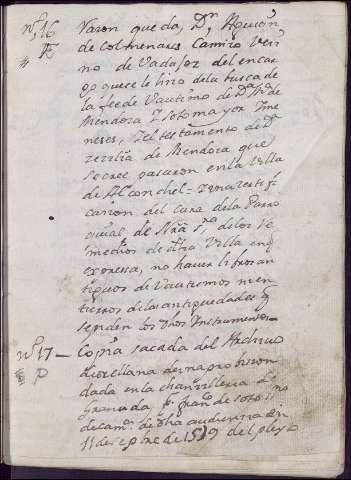 nº 16 Razon que da, Dn, Asencio
de Colmenares Camiro veci
no de Vadajoz del encar
go que se le hizo de la busca de
la fee de Vautismo de Dª
Mendoza y Sotomayor Me
neses, y el testamento de Dª
Zezilia de Mendoza que
se cree pasaron en la Villa
de Alconchel = y una zertifi
cazion del Cura de la Parro
quial de Nrª Srª de los Re
medios de dha Villa en q
expressa, no haver libros an
tiguos de Vautismos ni en
tierros de las antiguedades q
se piden los dhos Instrumentos
nº 17 - Copia sacada del Archivo
de orellana de una probision
dada en la Chanzilleria de
Granada, pr Franco de soto ssno
de camª de dha audienzia en
11 de sepre de 1519 del pleyto